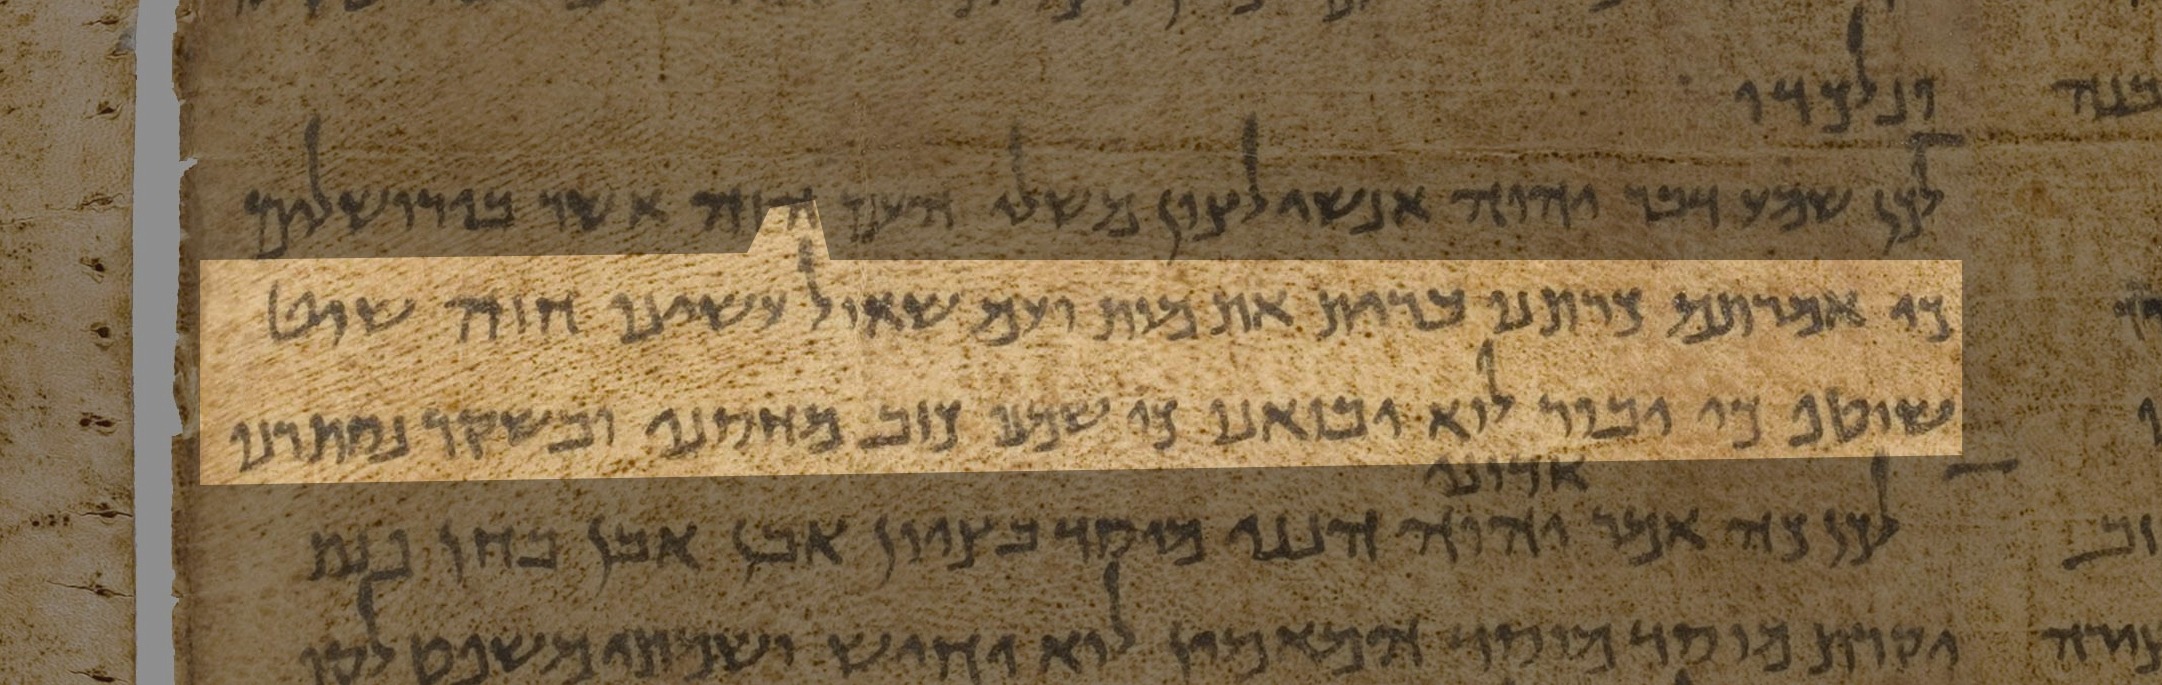 ונלכדו
לכן שמעו דבר יהוה אנשי לצון משלי העם הזה אשר בירושלם
כי אמרתם כרתנו ברית את מות ועם שאול עשינו חוזה שוט
שוטף כי יבור לוא יבואנו כי שמנו כזב מחסנו ובשקר נסתרנו
אדוני
לכן כה אמר יהוה הנני מיסד בציון אבן אבן בחן פנת
יקרת מוסד מוסד המאמין לוא יחיש ושמתי משפט לקו